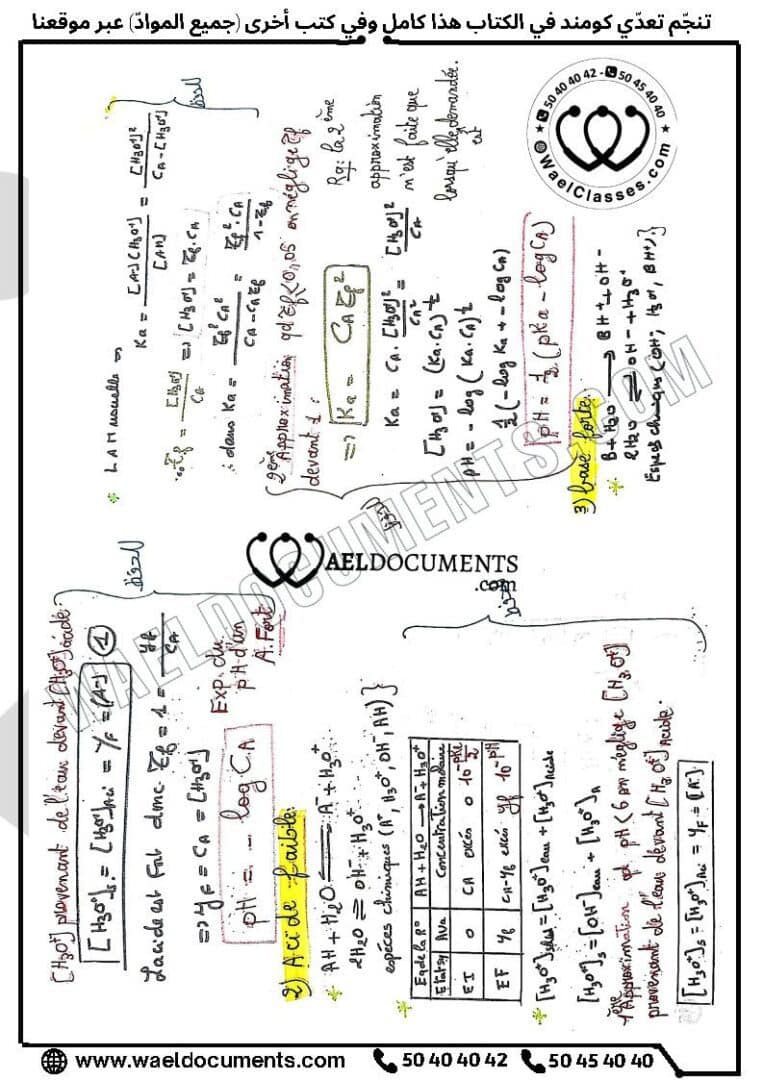 تنجّم تعدّي كومند في الكتاب هذا كامل وفي كتب أخرى (جميع الموادّ) عبر موقعنا
50 40 40 42 - 50 45 40 40
WaelClasses.com
[H3O+] provenant de l'eau devant [H3O+] acide.
[H3O+]s = [H3O+]Aci = yF = [A-] ①
L'acide est Fort donc τf = 1 = yf / CA
=> yF = CA = [H3O+]
pH = - log CA
Exp. du
pH d'un
A. Fort
2) Acide faible:
* AH + H2O ⇌ A- + H3O+
2H2O ⇌ OH- + H3O+
espèces chimiques (A-, H3O+, OH-, AH)}
* Eq de la R° | AH + H2O → A- + H3O+
Etat sy | AVa | Concentration molaire
EI | 0 | CA excès 0 10^-pKe/2
EF | yf | CA-yf excès yf 10^-pH
* [H3O+]s = [H3O+]eau + [H3O+]Acide
[H3O+]s = [OH-]eau + [H3O+]A
1ère Approximation qd pH < 6 on néglige [H3O+]
provenant de l'eau devant [H3O+] Acide.
[H3O+]s = [H3O+]Aci = yF = [A-]
WAELDOCUMENTS
.com
* LAM
=>
Ka = [A-][H3O+] / [AH] = [H3O+]² / CA - [H3O+]
τf = [H3O+] / CA => [H3O+] = τf . CA
dans Ka = τf² CA² / CA - CA τf = τf² . CA / 1 - τf
2ème Approximation qd τf < 0,05 on néglige τf
devant 1:
=> Ka = CA τf²
Rq: la 2ème
approximation
n'est faite que
lorsqu'elle est demandée.
Ka = CA . [H3O+]² / CA² = [H3O+]² / CA
[H3O+] = (Ka . CA)^½
pH = - log (Ka . CA)^½
½ (- log Ka + - log CA)
pH = ½ (pKa - log CA)
3) base forte:
* B + H2O → BH+ + OH-
2H2O ⇌ OH- + H3O+
Espèces chimiques (OH-, H3O+, BH+)}
WAELDOCUMENTS.COM
www.waeldocuments.com 50 40 40 42 50 45 40 40